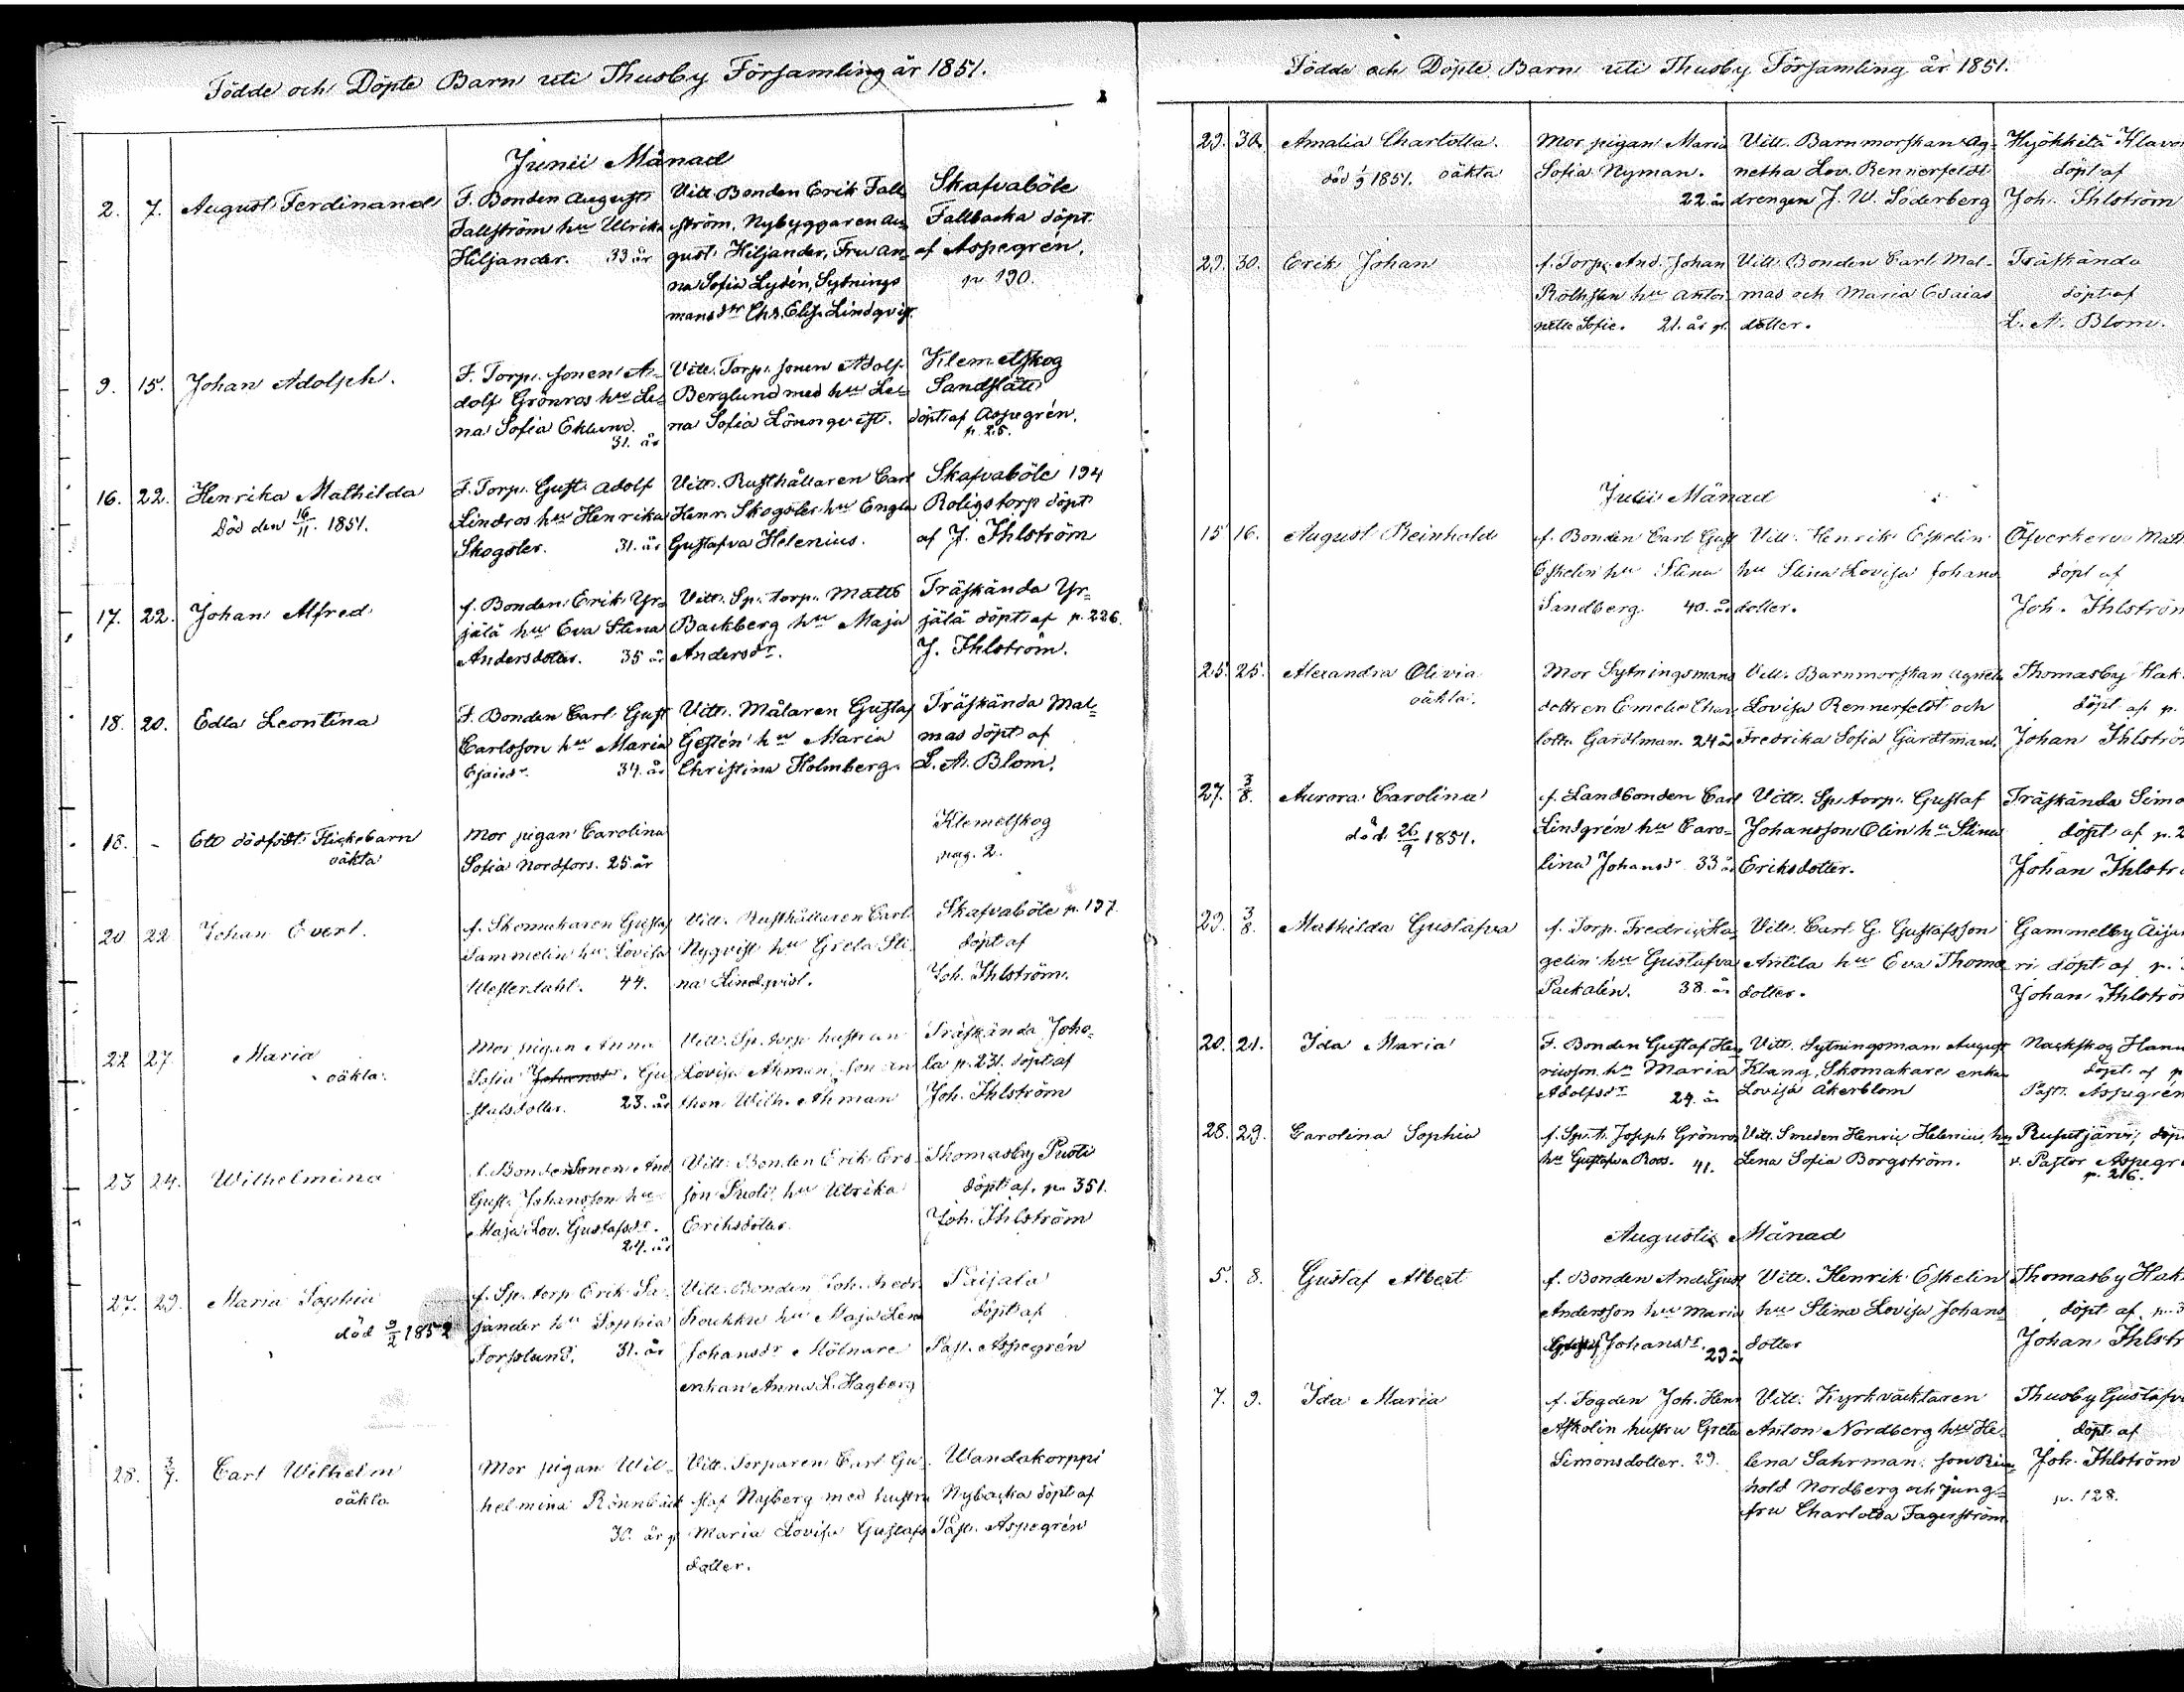 Födde och Döpte Barn uti Thusby Församling år 1851.
Junii Månad
2. 7. August Ferdinand
F. Bonden August
Fallström hu Ulrika
Hiljander. 33 år
Vitt. Bonden Erik Fall-
ström, Nybyggaren Au-
gust Hiljander, Fru An-
na Sofia Lydén, Sytnings
mans dtr Chs. Elis. Lindqvist.
Skafvaböle
Fallbacka döpt
af Aspegrén.
p. 190.
9. 15. Johan Adolph.
F. Torp. sonen A-
dolf Grönros hu Le-
na Sofia Eklund.
31. år
Vitt. Torp. sonen Adolf
Berglund med hu Le-
na Sofia Lönnqvist.
Klemetskog
Sandslätt
döpt af Aspegrén.
p. 25.
16. 22. Henrika Mathilda
Död den 16/11. 1851.
F. Torp. Gust. Adolf
Lindros hu Henrika
Skogster. 31. år
Vitt. Rusthållaren Carl
Henr. Skogster hu Engla
Gustafva Helenius.
Skafvaböle 194
Roligstorp döpt
af J. Ihlström
17. 22. Johan Alfred
f. Bonden Erik Yr-
jälä hu Eva Stina
Andersdotter. 35 år
Vitt. Sp. torp. Matts
Backberg hu Maja
Andersdr.
Träskända Yr-
jälä döpt af p. 226.
J. Ihlström.
18. 20. Edla Leontina
F. Bonden Carl Gust
Carlsson hu Maria
Esaiedr. 34. år
Vitt. Målaren Gustaf
Gestén hu Maria
Christina Holmberg.
Träskända Mal-
mas döpt af
L. A. Blom.
18. - Ett dödfödt Flickebarn
oäkta
Mor pigan Carolina
Sofia Nordfors. 25 år
Klemetskog
pag. 2.
20 22 Johan Evert.
f. Skomakaren Gustaf
Sammelin hu Lovisa
Westerdahl. 44.
Vitt. Rusthållaren Carl
Nyqvist hu Greta Sti-
na Lindqvist.
Skafvaböle p. 197.
döpt af
Joh. Ihlström.
22 27. Maria
oäkta.
Mor pigan Anna
Sofia Johansdr. Gu
stafsdotter. 23. år
Vitt. Sp. torp. hustrun
Lovisa Åhman, son An
thon Wilh. Åhman
Träskända Joho-
la p. 231. döpt af
Joh. Ihlström
23 24. Wilhelmina
f. Bondesonen And
Gust. Johansson hu
Maja Lov. Gustafsdr.
24. år
Vitt. Bonden Erik Ers-
son hu Ulrika
Eriksdotter.
Thomasby
döpt af. p. 351.
Joh. Ihlström
27. 29. Maria Sophia
död 9/2 1852
f. Sp. torp Erik
jander hu Sophia
Forsslund. 31. år
Vitt. Bonden Joh. Fredr
Koukku hu Maja Lena
Johansdr Mölnare
enkan Anna L. Hagberg
Paijala
döpt af
Past. Aspegrén
28. 3/7. Carl Wilhelm
oäkta.
Mor pigan Wil-
helmina Rönnbäck
30. år g.
Vitt. Torparen Carl Gu-
staf Nyberg med hustru
Maria Lovisa Gustafs
dotter.
Wandakorppi
Nybacka döpt af
Past. Aspegrén
Födde och Döpte Barn uti Thusby Församling år 1851.
29. 30. Amalia Charlotta.
död 1/9 1851. oäkta
Mor pigan Maria
Sofia Nyman.
22 år
Vitt. Barnmorskan Ag-
netha Lov. Rennerfeldt
drengen J. W. Söderberg
Hyökkilä
döpt af
Joh. Ihlström
29. 30. Erik Johan
f. Torp. And. Johan
Rothsten hu Antoi
nette Sofie. 21. år g.
Vitt. Bonden Carl Mal-
mas och Maria Esaias
dotter.
Träskända
döpt af
L. A. Blom.
Julii Månad
15 16. August Reinhold
f. Bonden Carl Gust
Eskelin hu Stina
Sandberg. 40. år
Vitt. Henrik Eskelin
hu Stina Lovisa Johans
dotter.
Öfverkervo
döpt af
Joh. Ihlström
25. 25. Alexandra Olivia
oäkta.
Mor Sytningsmans
dottren Emelie Char-
lotta Gardtman. 24 år
Vitt. Barnmorskan Agneta
Lovisa Rennerfeldt och
Fredrika Sofia Gardtman.
Thomasby Hak
döpt af p.
Johan Ihlström
27. 3/8. Aurora Carolina
död 26/9 1851.
f. Landbonden Carl
Lindgrén hu Caro-
lina Johansdr 33 år
Vitt. Sp. torp. Gustaf
Johansson Olin hu Stina
Eriksdotter.
Träskända Simo
döpt af p. 2
Johan Ihlstr
29. 3/8. Mathilda Gustafva
f. Torp. Fredrik Ha-
gelin hu Gustafva
Packalén. 38. år
Vitt. Carl G. Gustafsson
Antila hu Eva Thoma
dotter.
Gammelby Äija
ri döpt af p.
Johan Ihlström
20. 21. Ida Maria
F. Bonden Gustaf Hen
ricsson hu Maria
Adolfsdr 24. år
Vitt. Sytningsman August
Klang, Skomakare enka
Lovisa Åkerblom
Nackskog Hann
döpt af p
Past. Aspegrén
28. 29. Carolina Sophia
f. Sp. t. Joseph Grönros
hu Gustafva Roos. 41.
Vitt. Smeden Henric Helenius, hu
Lena Sofia Borgström.
Rusutjärvi, döpt
v. Pastor Aspegr
p. 216.
Augusti Månad
5. 8. Gustaf Albert
f. Bonden And. Gust
Andersson hu Maria
Johansdr. 29 år
Vitt. Henrik Eskelin
hu Stina Lovisa Johans
dotter
Thomasby Hak
döpt af p. 3
Johan Ihlstr
7. 9. Ida Maria
f. Fogden Joh. Henr
Askolin hustru Greta
Simonsdotter. 29.
Vitt. Kyrkväcktaren
Anton Nordberg hu He-
lena Sahrman. son Rein-
hold Nordberg och jung-
fru Charlotta Fagerström
Thusby Gustafv
döpt af
Joh. Ihlström
p. 128.